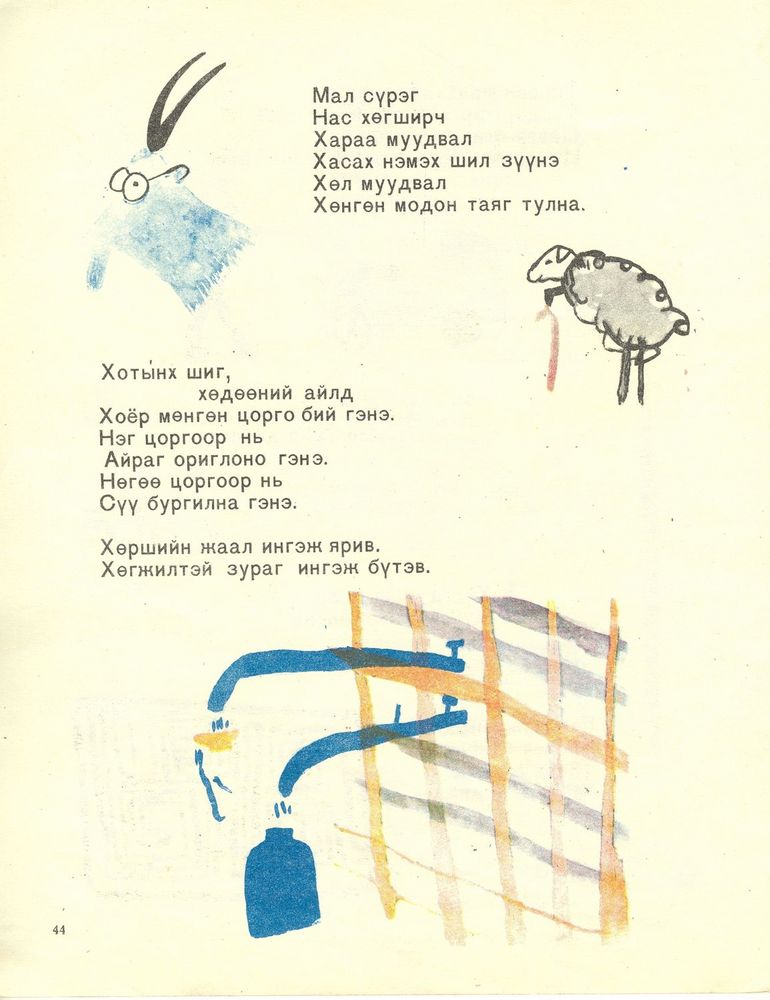 Мал сүрэг
Нас хөгширч
Хараа муудвал
Хасах нэмэх шил зүүнэ
Хөл муудвал
Хөнгөн модон таяг тулна.
Хотынх шиг,
хөдөөний айлд
Хоёр мөнгөн цорго бий гэнэ.
Нэг цоргоор нь
Айраг оригLоно гэнэ.
Нөгөө цоргоор нь
Сүү бургилна гэнэ.
Хөршийн жаал ингэж ярив.
Хөгжилтэй зураг ингэж бүтэв.
44